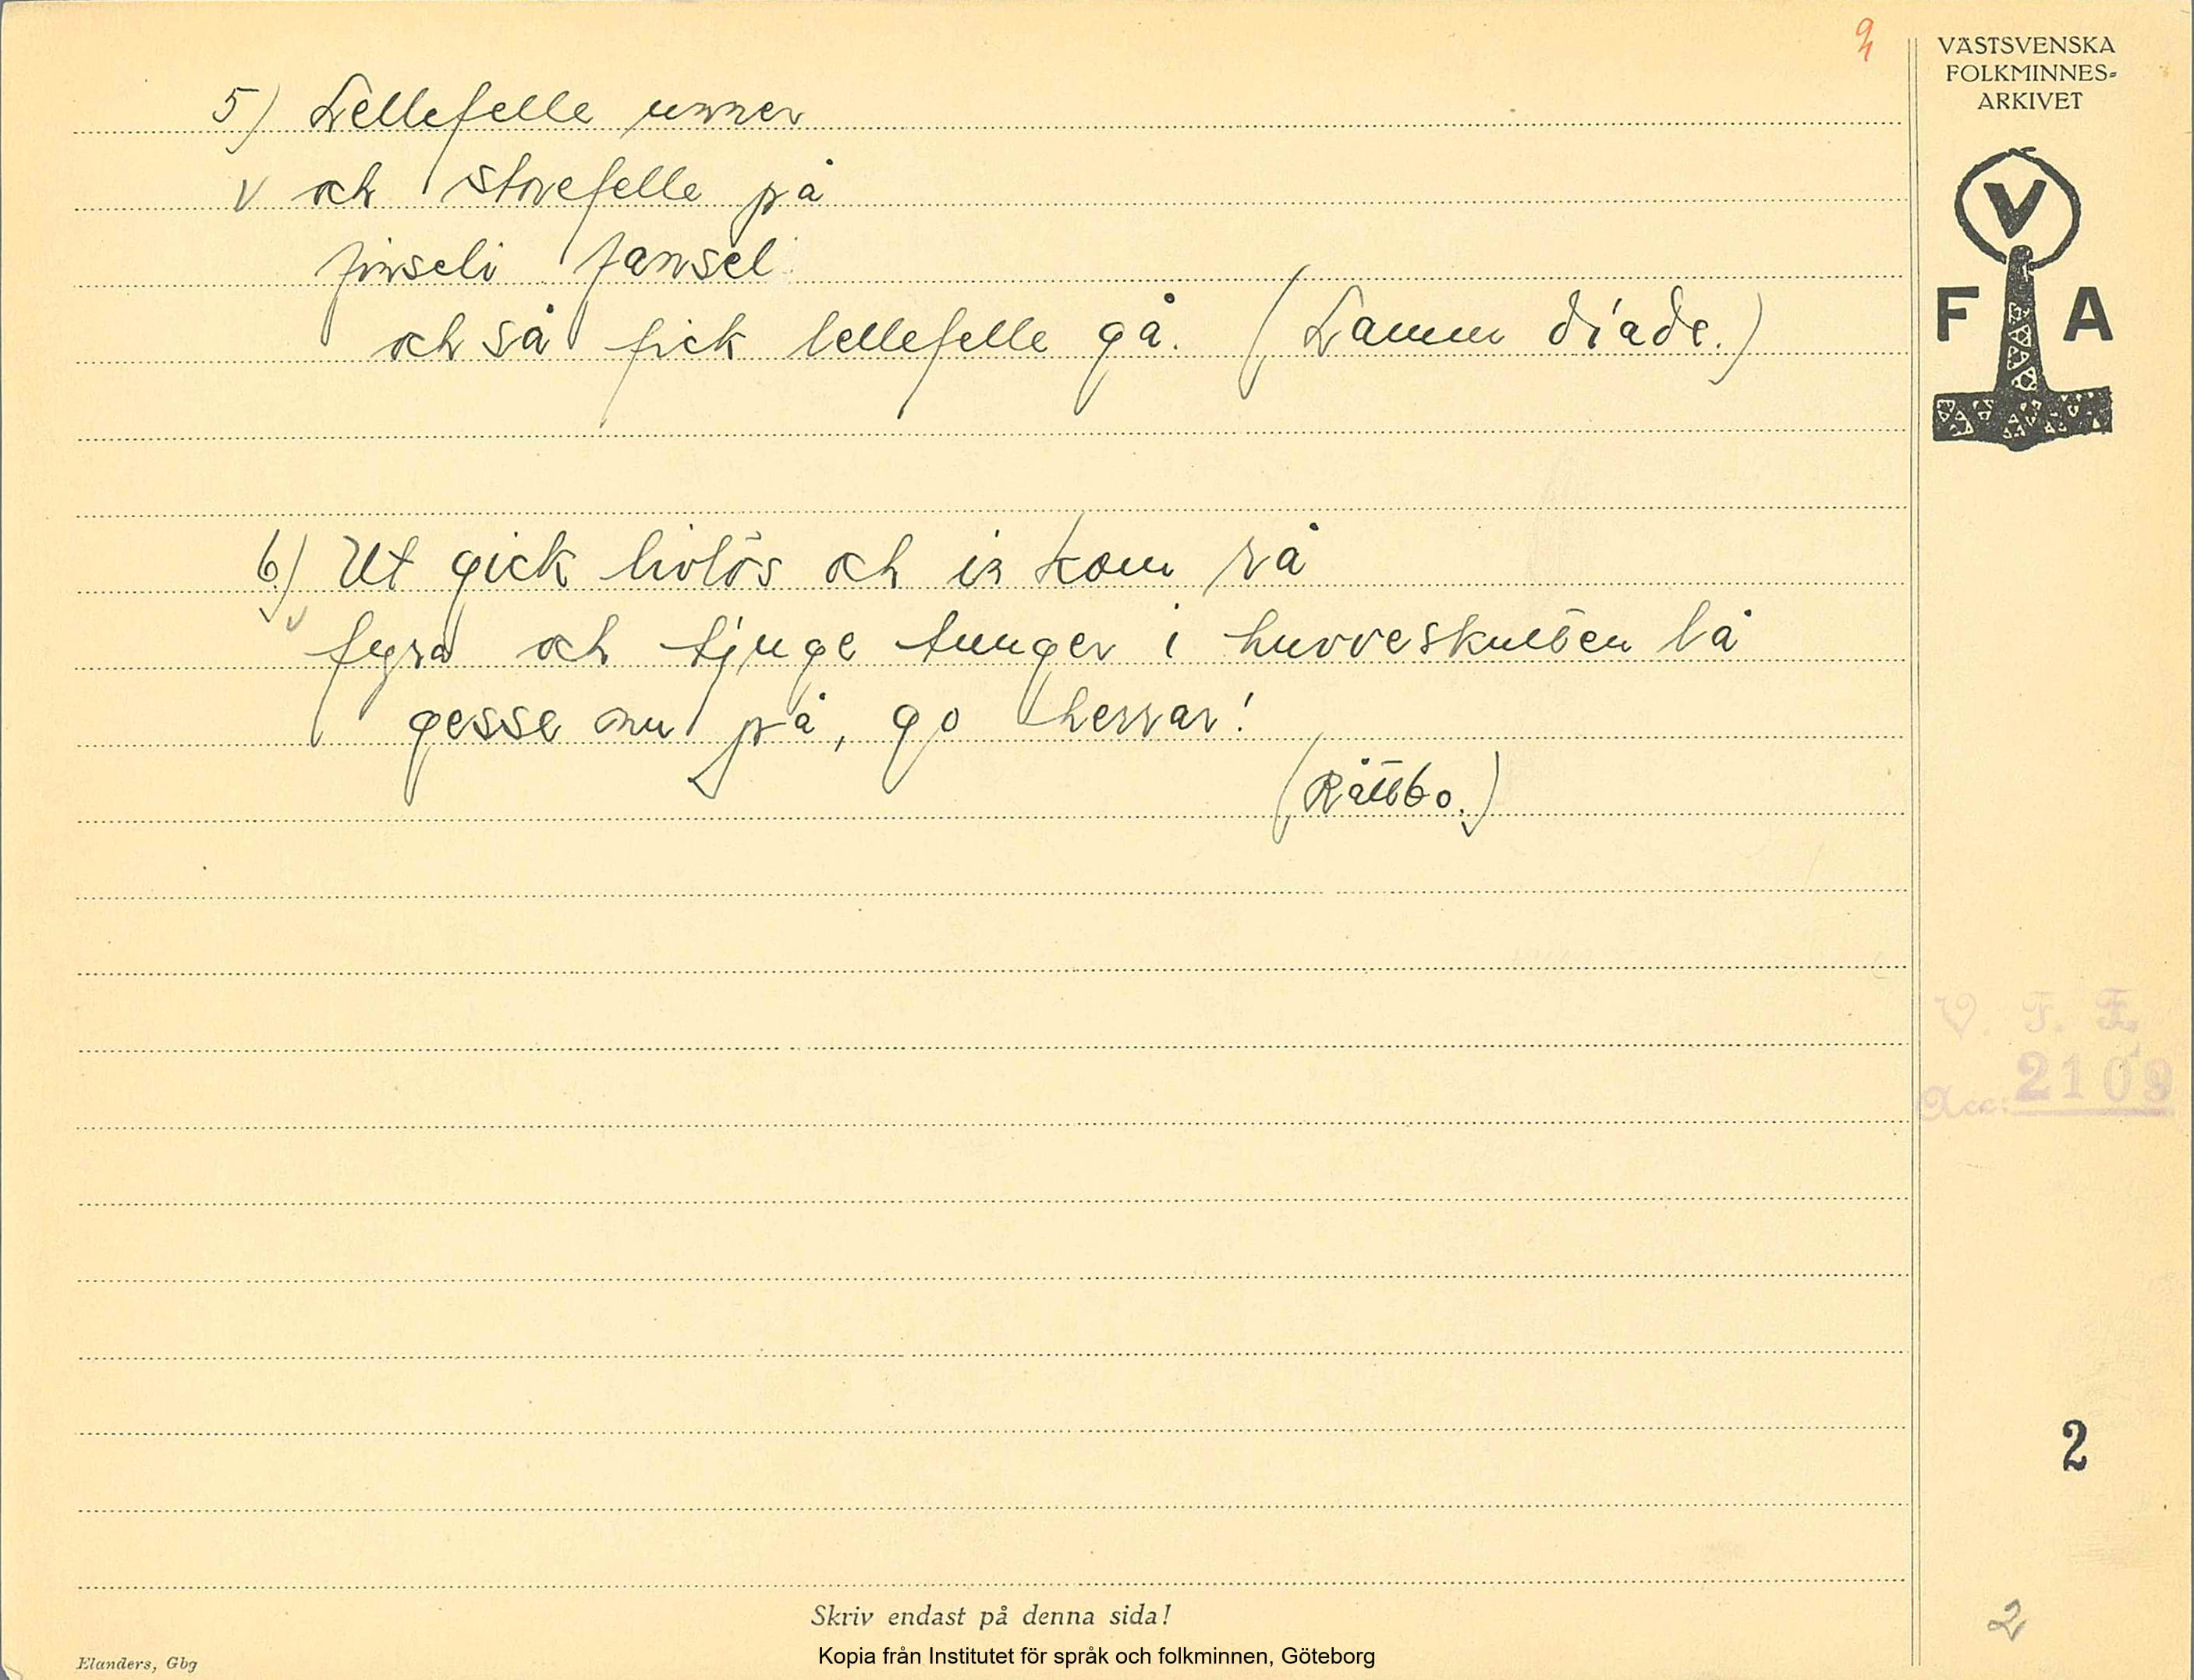 9
VÄSTSVENSKA
FOLKMINNES-
ARKIVET
V
F A
5) Lellefelle unner
v och storefelle på
finseli fansel
och så fick lellefelle gå. (Lamm diade.)
6.) Ut gick livlös och in kom rå
fyra och tjuge tunger i huvveskullen lå
gesse nu på, go herrar!
(Råttbo.)
V. F. F.
Acc: 2109
2
2
Skriv endast på denna sida!
Elanders, Gbg
Kopia från Institutet för språk och folkminnen, Göteborg